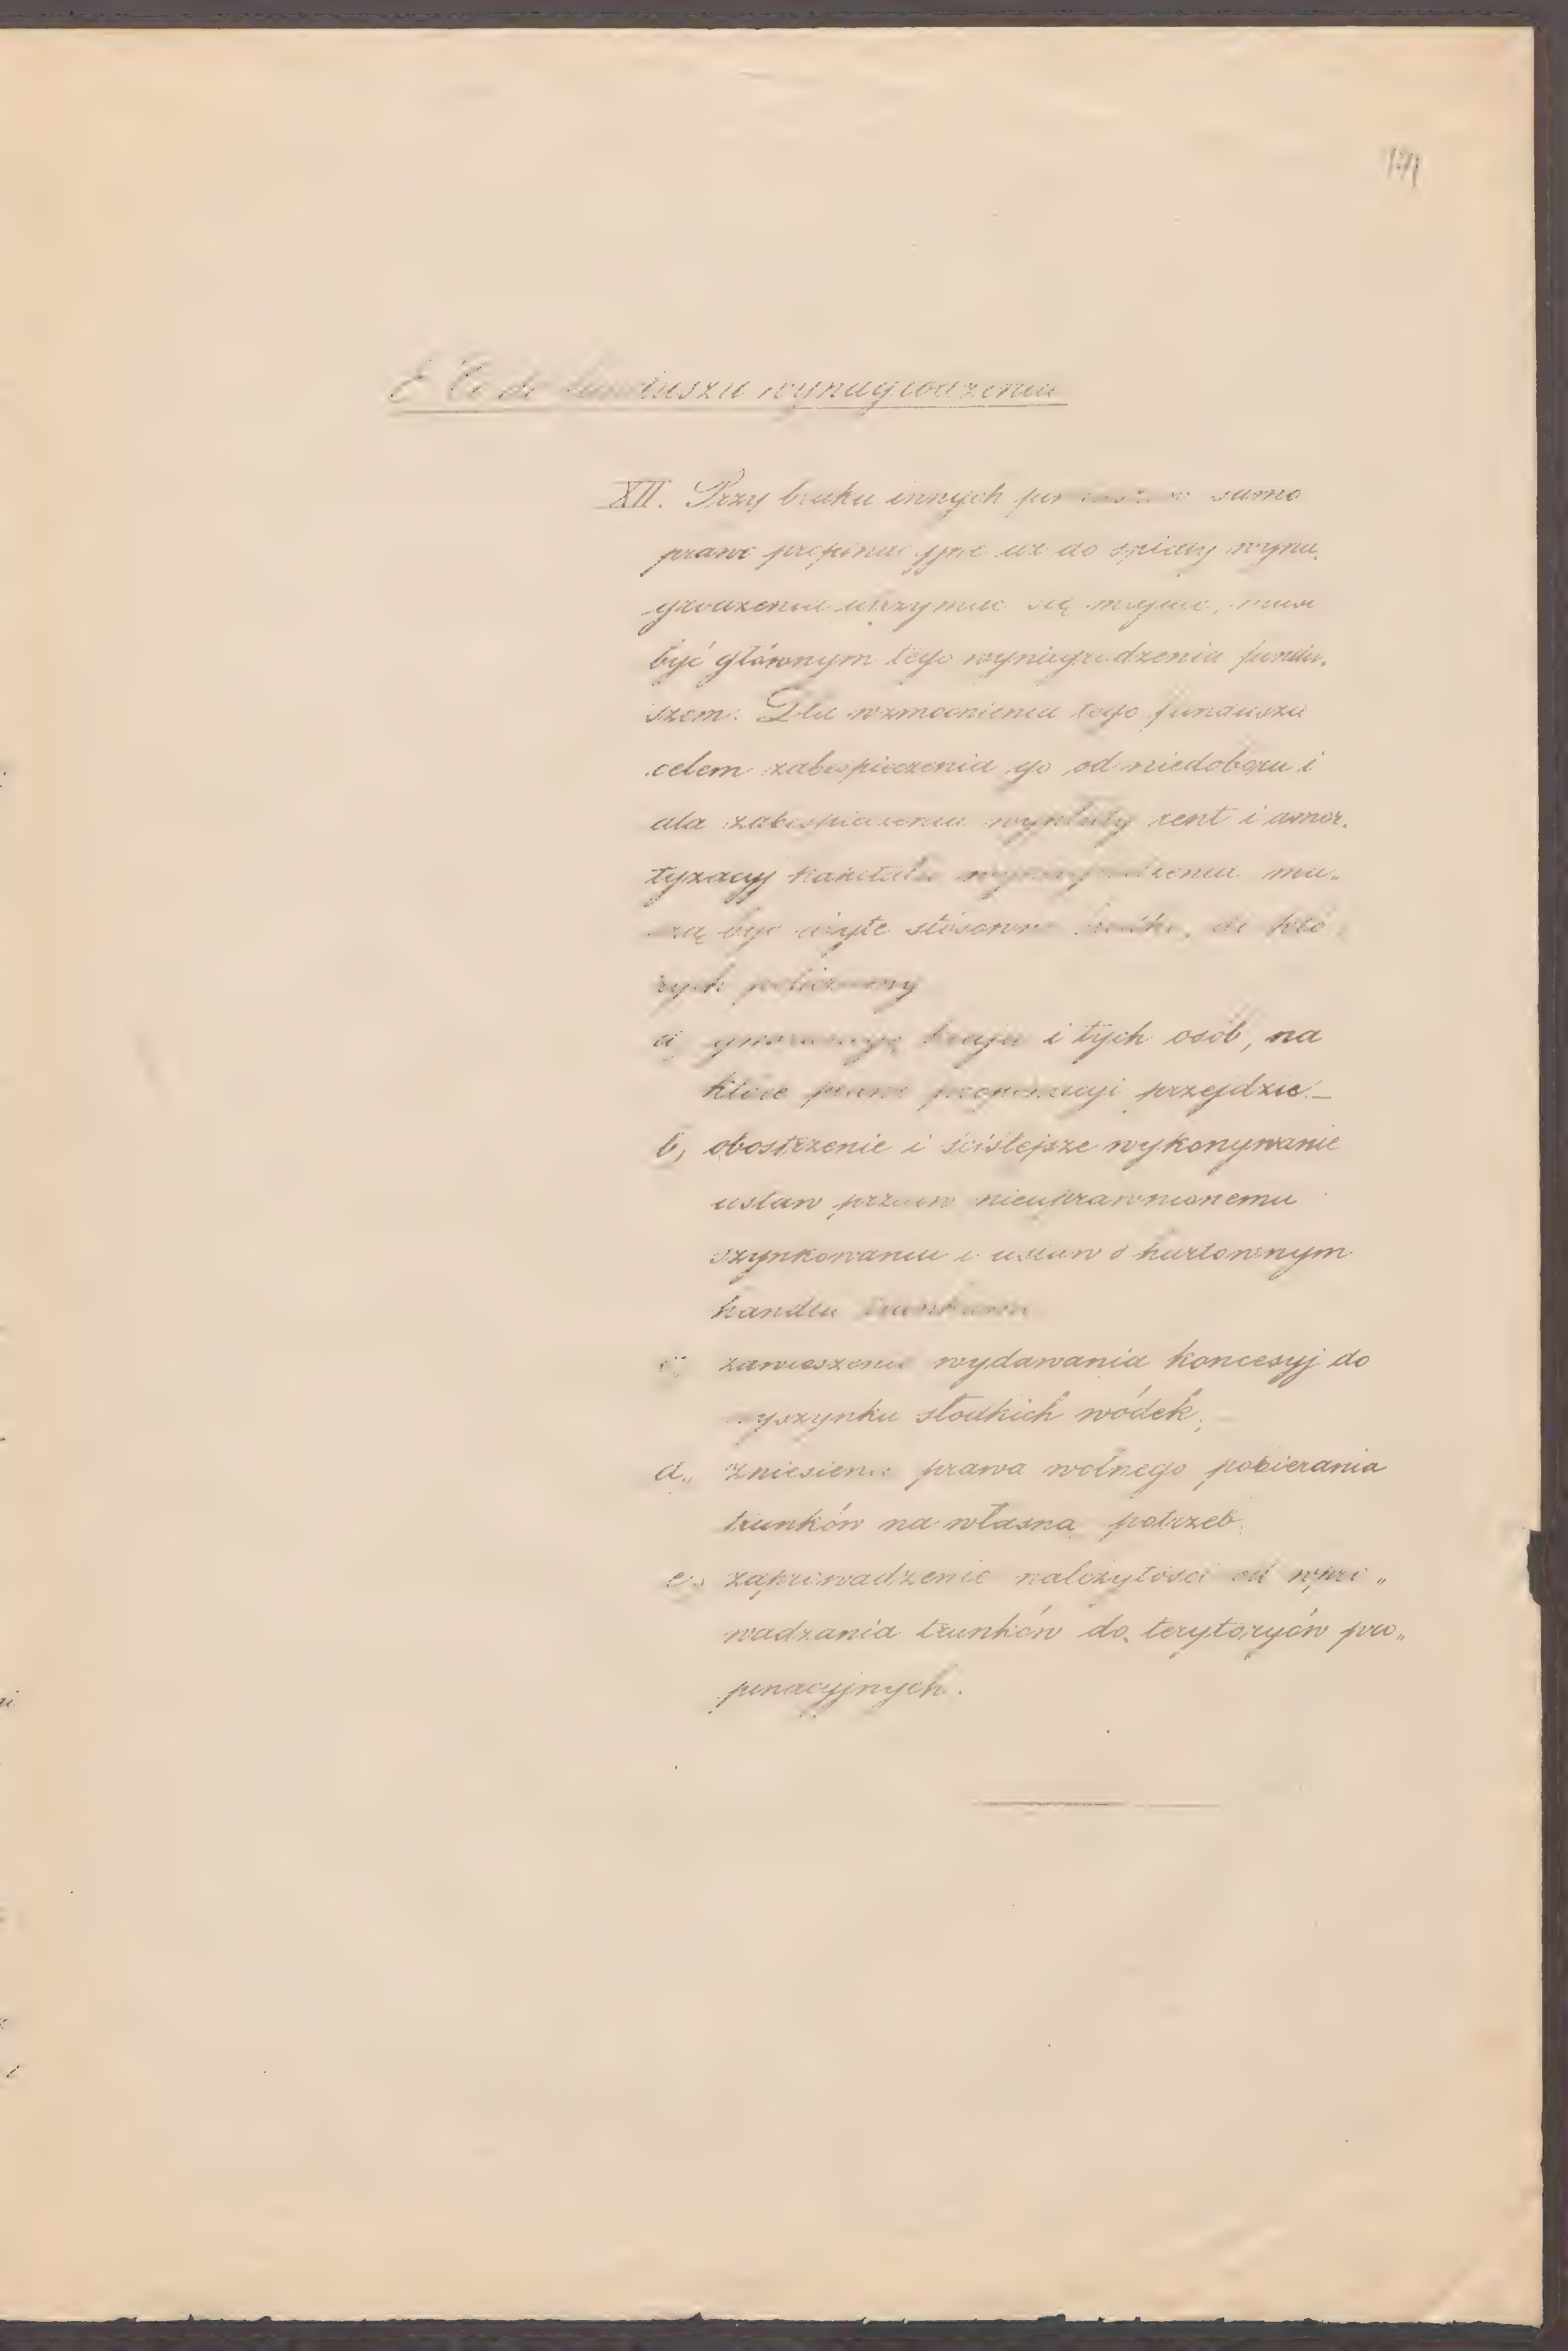 E Co do funduszu wynagrodzenia
XII. Przy braku innych funduszów samo
prawo propinacyjne aż do spłaty wyna„
grodzenia utrzymać się mające, musi
być głównym tego wynagrodzenia fundu„
szem. Dla wzmocnienia tego funduszu
celem zabespieczenia go od niedoboru i
dla zabespieczenia wypłaty rent i amor„
tyzacyj kapitału wynagrodzenia mu„
szą być użyte stósowne środki, do któ„
rych policzamy
a, gwarancyę kraju i tych osób, na
które prawo propinacyi przejdzie. –
b, obostrzenie i ściślejsze wykonywanie
ustaw przeciw nieuprawnionemu
szynkowaniu i ustaw o hurtownym
handlu trunkami
c, zawieszenie wydawania koncesyj do
wyszynku słodkich wódek,
d„ zniesienie prawa wolnego pobierania
trunków na własną potrzebę
e, zaprowadzenie należytości od wpro„
wadzania trunków do terytoryów pro„
pinacyjnych.